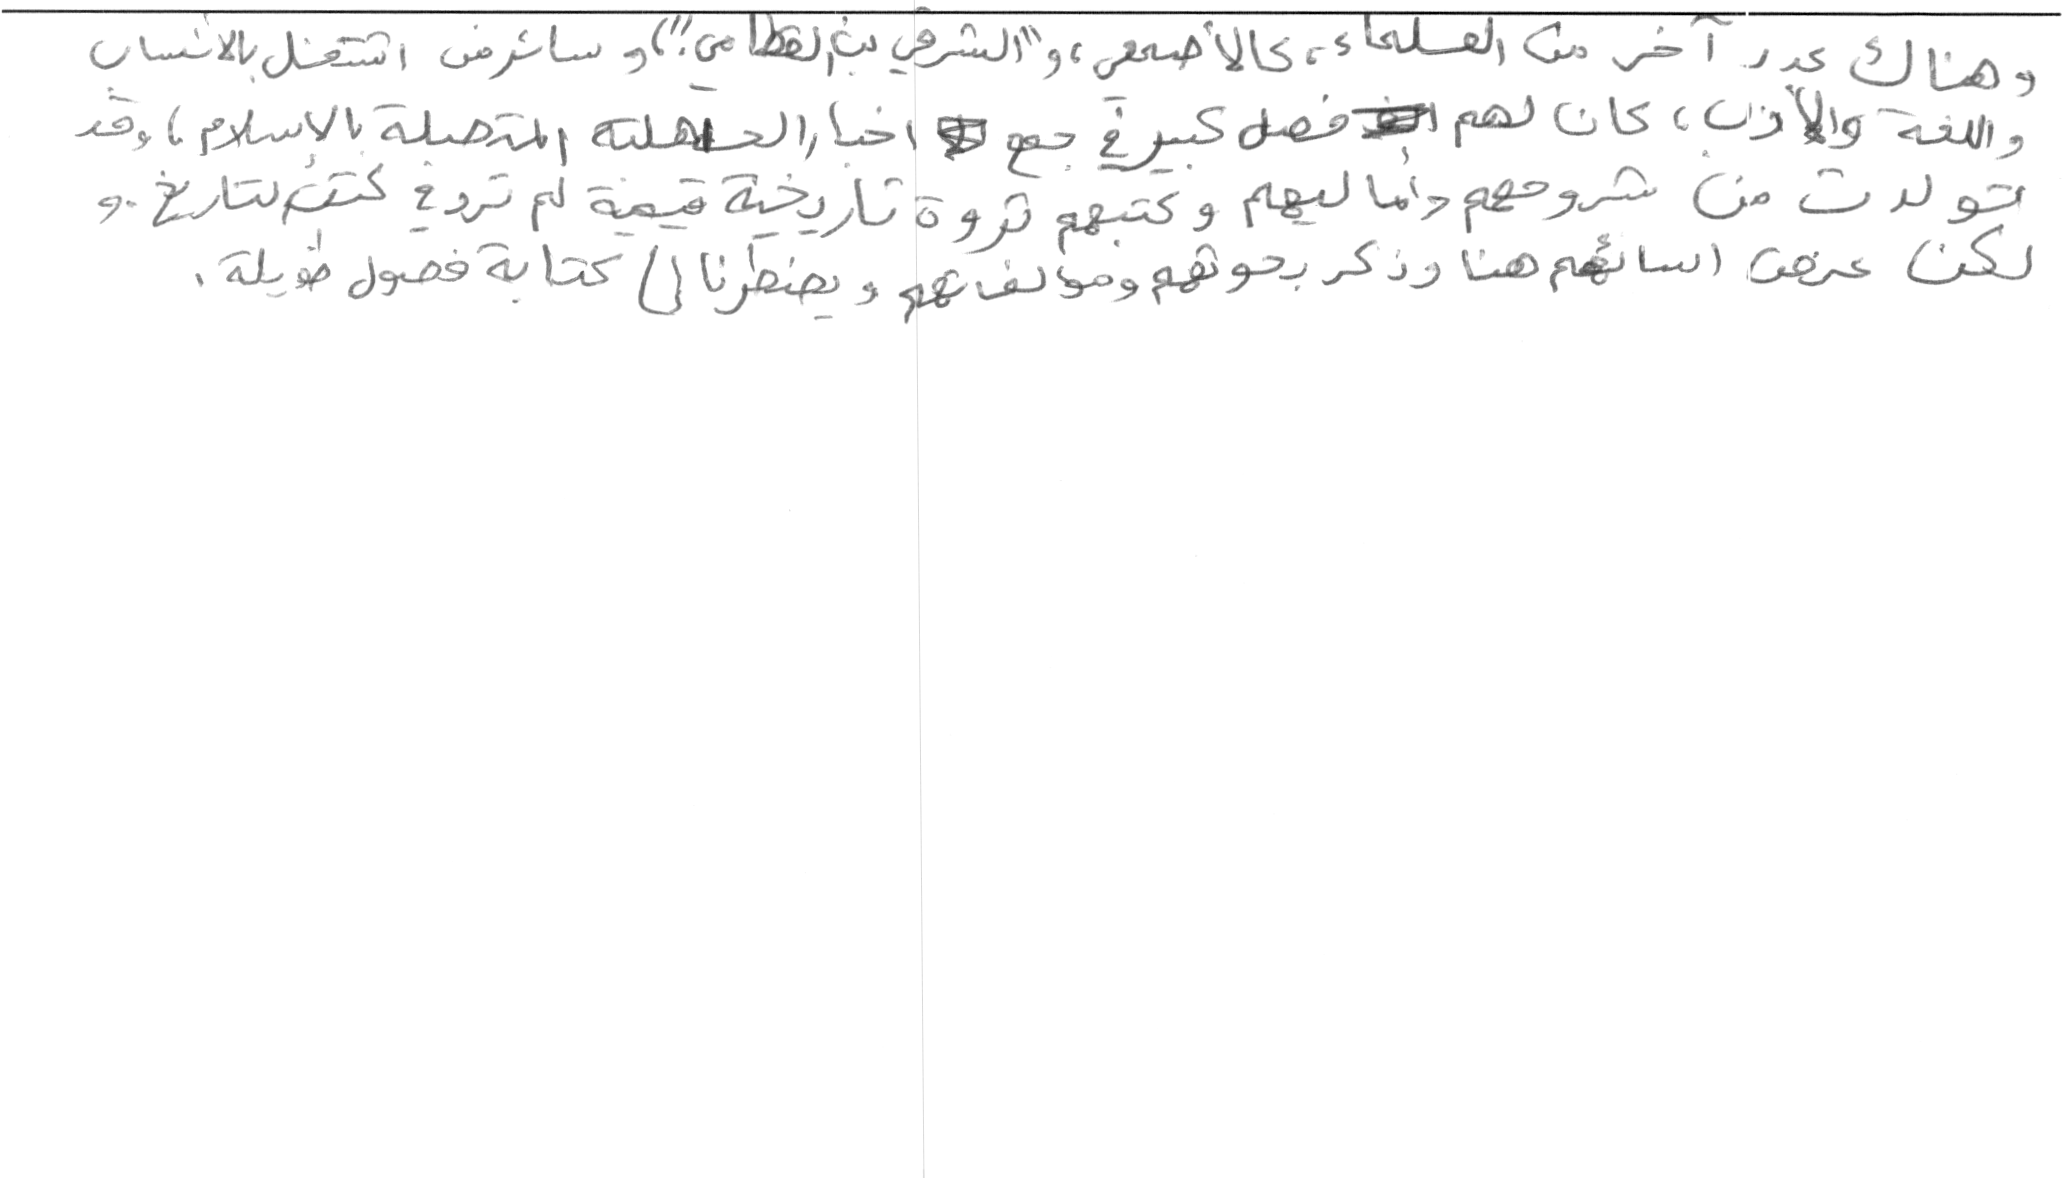 وهناك عدد آخر من العلماء، كالأصمعي، و"الشرقي بن القطامي"، وسائر من اشتغل بالانساب
واللغة والأدب، كان لهم فضل كبير في جمع اخبار الجاهلية المتصلة بالاسلام، وقد
تولدت من شروحهم وأماليهم وكتبهم ثروة تاريخية قيمة لم ترو في كتب لتاريخ. و
لكن عرض اسائهم هنا وذكر بحوثهم ومؤلفاتهم ويضطرنا الى كتابة فصول طويلة.